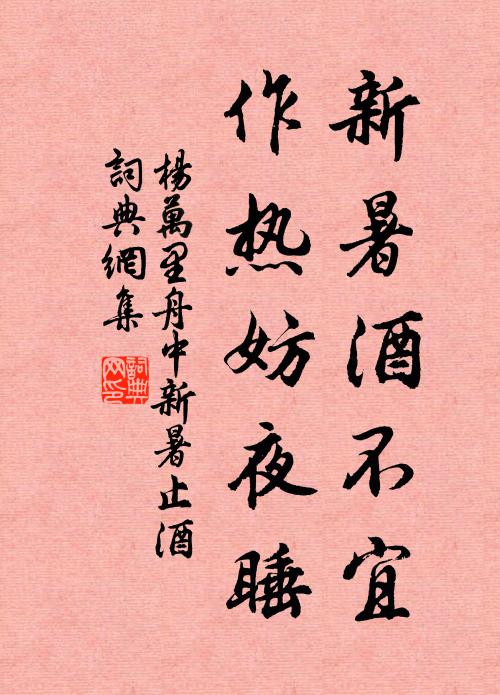 新暑酒不宜
作热妨夜睡
楊萬里舟中新暑止酒
詞典網集
詞典网印